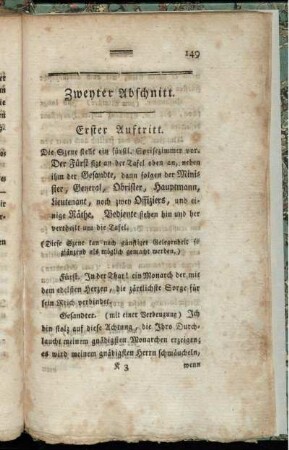 149
Zweyter Abschnitt.
Erster Auftritt.
Die Szene stellt ein fürstl. Speisezimmer vor.
Der Fürst sizt an der Tafel oben an, neben
ihm der Gesandte, dann folgen der Mini-
ster, General, Obrister, Hauptmann,
Lieutenant, noch zwey Offiziers, und ei-
nige Räthe. Bediente stehen hin und her
vertheilt um die Tafel.
(Diese Szene kan nach günstiger Gelegenheit so
glänzend als möglich gemacht werden.)
Fürst. In der That! ein Monarch der mit
dem edelsten Herzen, die zärtlichste Sorge für
sein Reich verbindet.
Gesandter. (mit einer Verbeugung) Ich
bin stolz auf diese Achtung, die Ihro Durch-
laucht meinem gnädigsten Monarchen erzeigen;
es wird meinem gnädigsten Herrn schmäucheln,
K 3 wenn